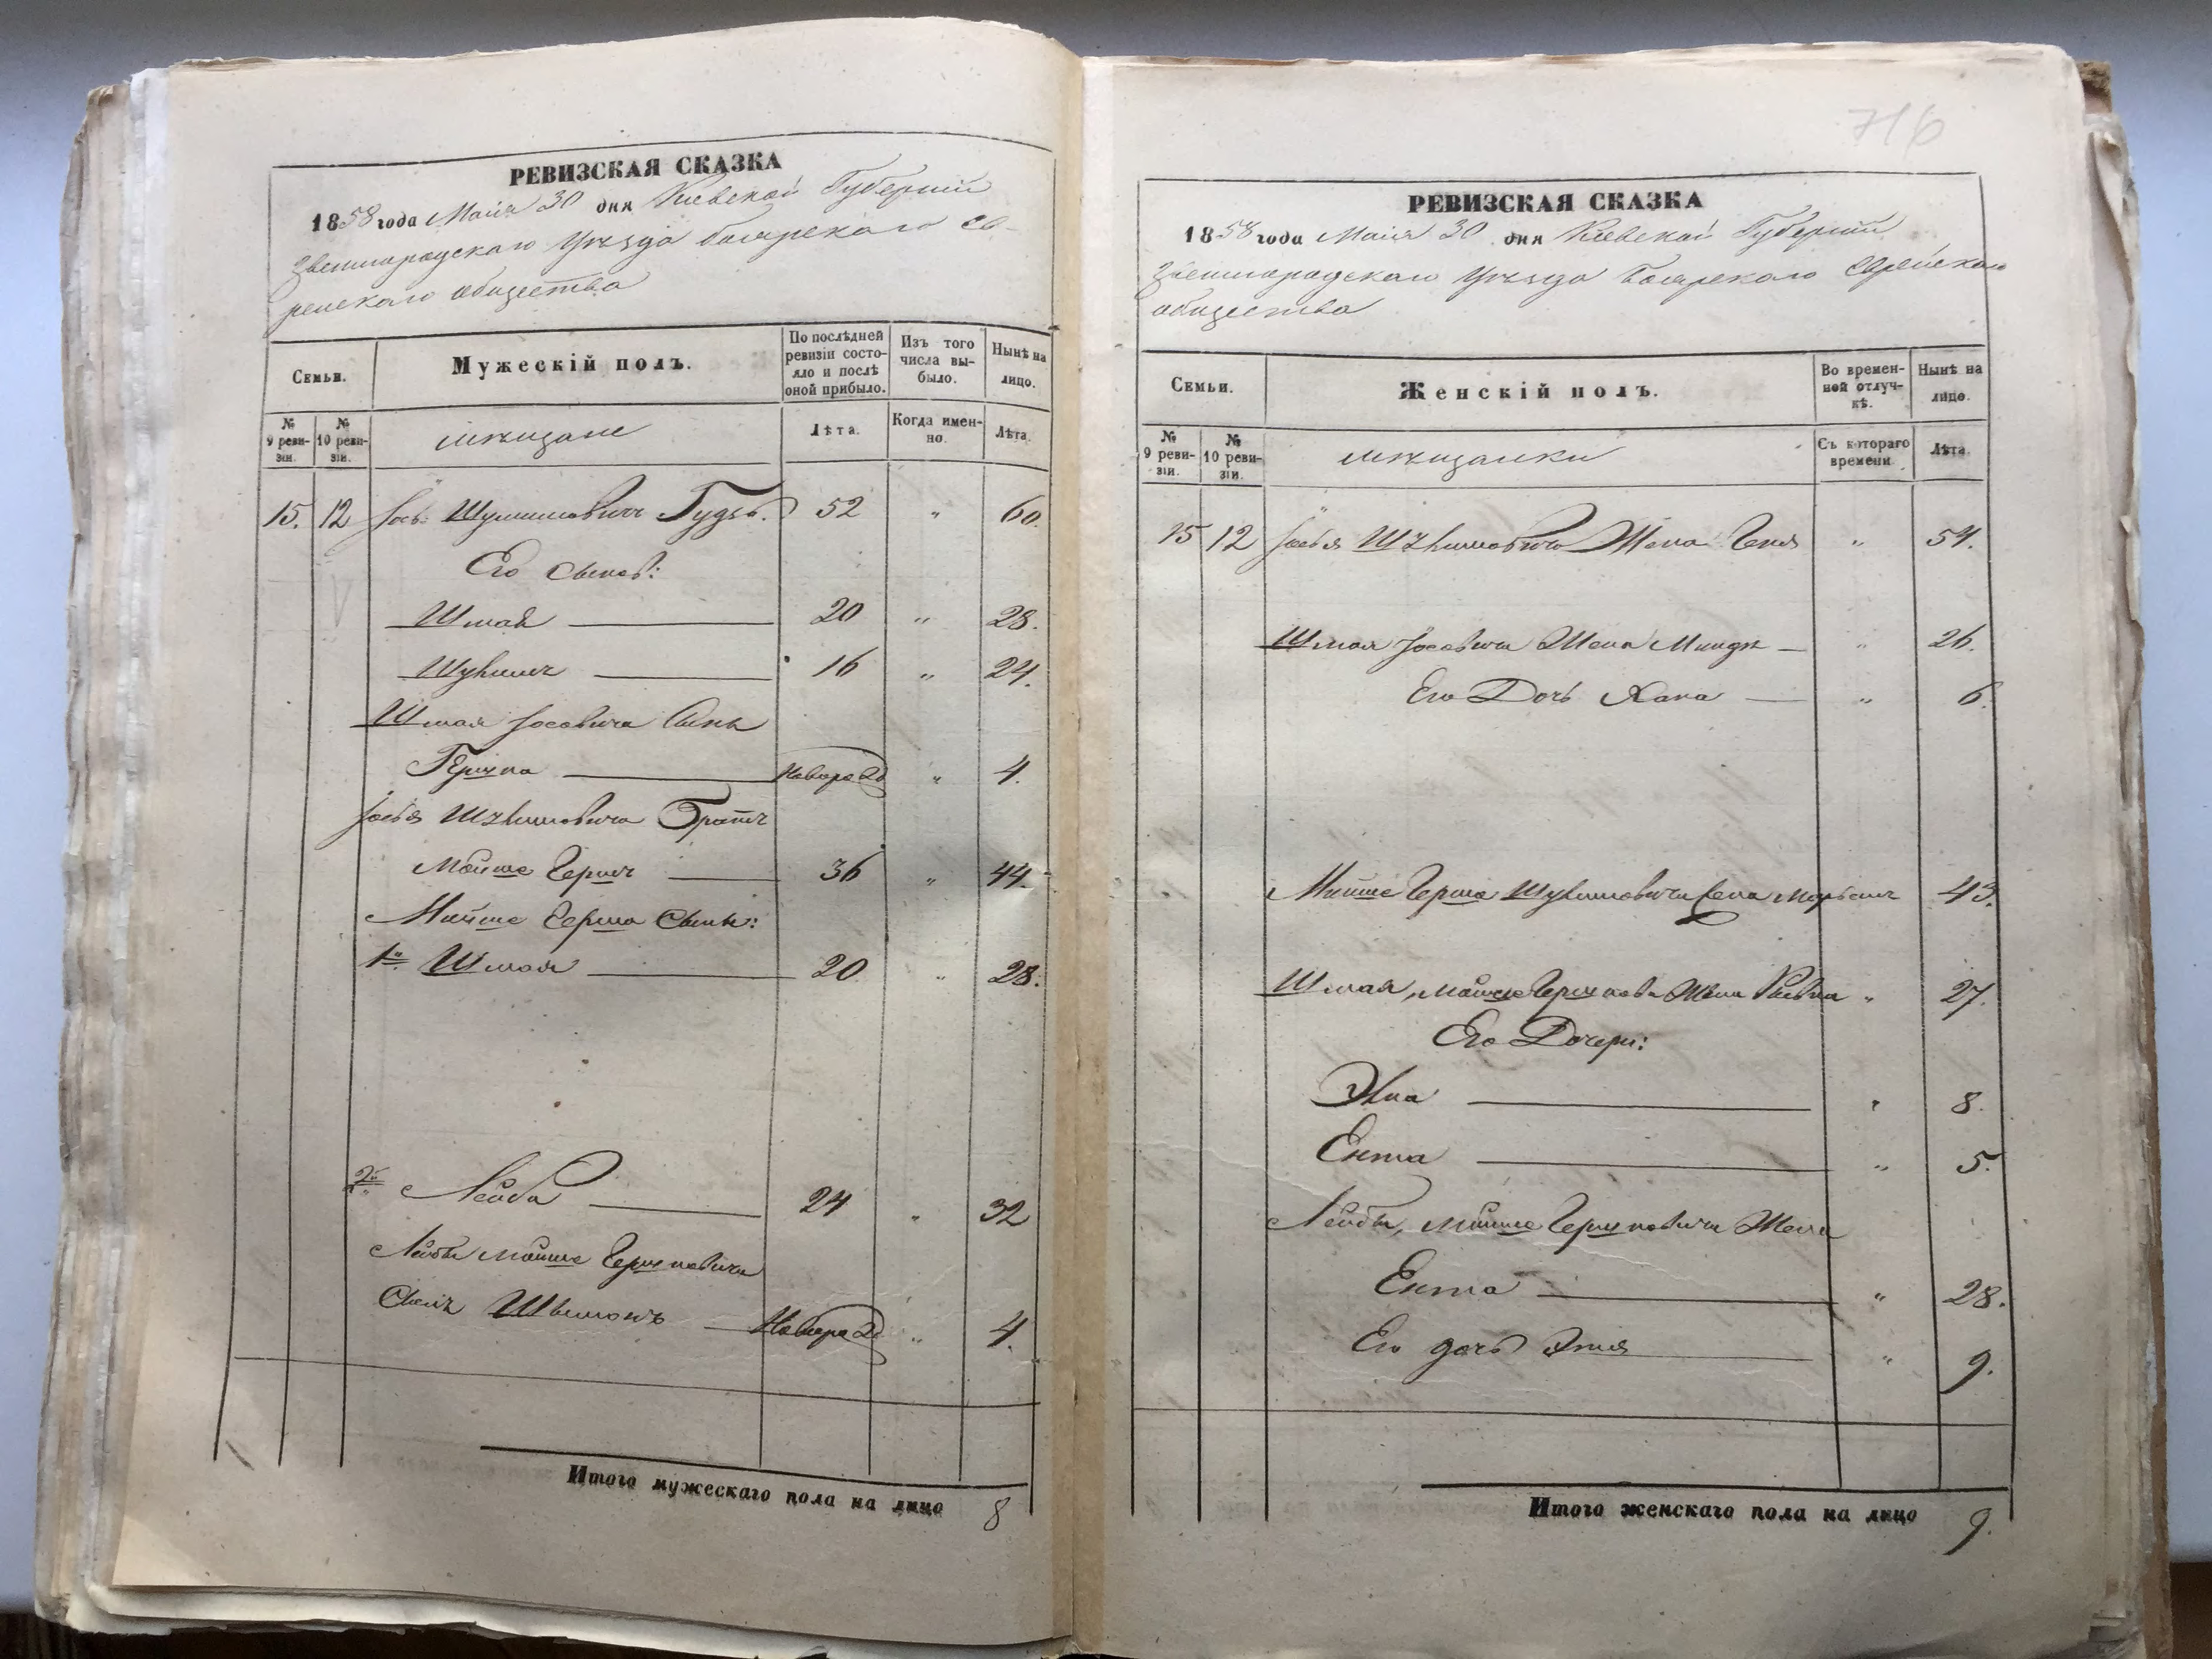 РЕВИЗСКАЯ СКАЗКА
1858 года Маія 30 дня Кіевской Губерніи
Звенигородскаго Уѣзда Боярскаго Ев-
рейскаго общества
Семьи.
Мужескій полъ.
По послѣдней ревизіи состояло и послѣ оной прибыло.
Изъ того числа выбыло.
Нынѣ на лицо.
№ 9 ревизіи.
№ 10 ревизіи.
мѣщане
Лѣта.
Когда именно.
Лѣта.
15. 12 Іось Гудзь. 52 " 60.
Его сыновь:
Шмая 20 " 28.
16 " 24.
Шмая Іосовича Сынъ
Гершко Новорожд " 4.
Іосья Братъ
Мойше Гершъ 36 " 44.
Мойше Герша Сыны:
1й. Шмая 20 " 28.
2й Лейба 24 " 32
Лейбы Мойше Гершковича
Сынъ Шлимонъ Новорожд " 4.
Итого мужескаго пола на лицо 8
716
РЕВИЗСКАЯ СКАЗКА
1858 года Маія 30 дня Кіевской Губерніи
Звенигородскаго Уѣзда Боярскаго Еврейскаго
общества
Семьи.
Женскій полъ.
Во временной отлучкѣ.
Нынѣ на лицо.
№ 9 ревизіи.
№ 10 ревизіи.
мѣщанки
Съ котораго времени
Лѣта.
15 12 Іосья Жена " 54.
Шмая Іосовича Жена Миндя " 26.
Его Дочь Хана " 6.
Мойше Герша Жена 43.
Шмая, Мойше Жена " 27.
Его Дочери:
Хна " 8.
Ента " 5.
Лейбы, Мойше Гершковича Жена
Ента " 28.
Его дочь Этя " 9.
Итого женскаго пола на лицо 9.